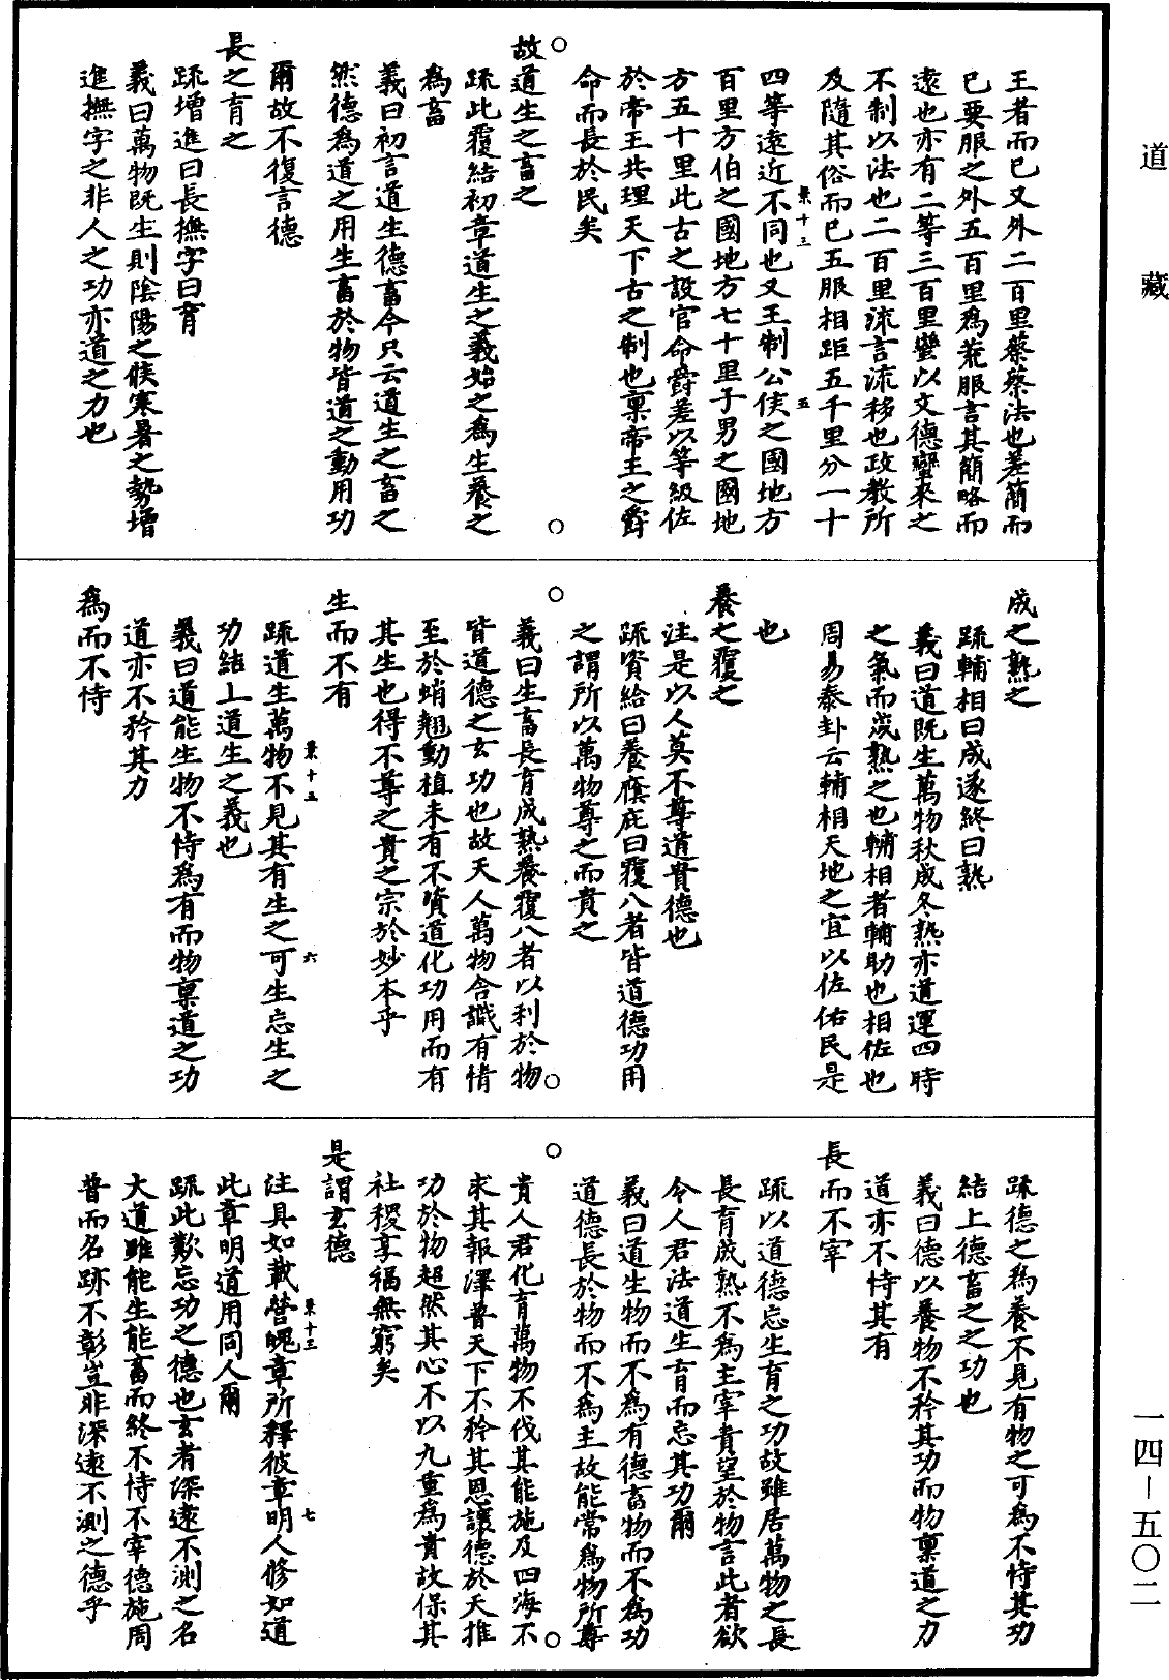 道藏
王者而已又外二百里蔡蔡法也差簡而
已要服之外五百里爲荒服言其簡略而
遠也亦有二等三百里蠻以文德蠻來之
不制以法也二百里流言流移也政教所
及隨其俗而已五服相距五千里分一十
四等遠近不同也又王制公侯之國地方
百里方伯之國地方七十里子男之國地
方五十里此古之設官命爵差以等級佐
於帝王共理天下古之制也稟帝王之爵
命而長於民矣
故道生之畜之
疏此覆結初章道生之義始之爲生養之
爲畜
義曰初言道生德畜今只云道生之畜之
然德爲道之用生畜於物皆道之動用功
爾故不復言德
長之育之
疏增進曰長撫字曰育
義曰萬物既生則陰陽之候寒暑之勢增
進撫字之非人之功亦道之力也
成之熟之
疏輔相曰成遂終曰熟
義曰道既生萬物秋成冬熟亦道運四時
之氣而成熟之也輔相者輔助也相佐也
周易泰卦云輔相天地之宜以佐佑民是
也
養之覆之
注是以人莫不尊道貴德也
疏資給曰養廕庇曰覆八者皆道德功用
之謂所以萬物尊之而貴之
義曰生畜長育成熟養覆八者以利於物
皆道德之玄功也故天人萬物含識有情
至於蛸翹動植未有不資道化功用而有
其生也得不尊之貴之宗於妙本乎
生而不有
疏道生萬物不見其有生之可生忘生之
功結上道生之義也
義曰道能生物不恃爲有而物稟道之功
道亦不矜其力
爲而不恃
疏德之爲養不見有物之可爲不恃其功
結上德畜之之功也
義曰德以養物不矜其功而物稟道之力
道亦不恃其有
長而不宰
疏以道德忘生育之功故雖居萬物之長
長育成熟不爲主宰責望於物言此者欲
令人君法道生育而忘其功爾
義曰道生物而不爲有德畜物而不爲功
道德長於物而不爲主故能常爲物所尊
貴人君化育萬物不伐其能施及四海不
求其報澤普天下不矜其恩讓德於天推
功於物超然其心不以九重爲貴故保其
社稷享福無窮矣
是謂玄德
注具如載營魄章所釋彼章明人修如道
此章明道用同人爾
疏此歎忘功之德也玄者深遠不測之名
大道雖能生能畜而終不恃不宰德施周
普而名跡不彰豈非深遠不測之德乎
一四－五〇二